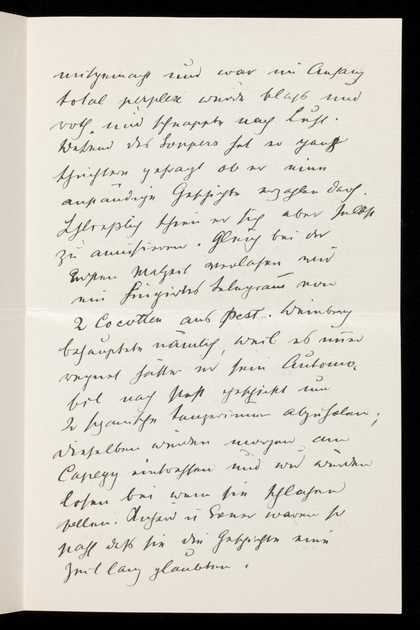 mitgemacht und war im Anfang
total perplex wurde blass und
roth, und schnappte nach Luft.
Während des Soupers hat er ganz
schüchtern gefragt ob er eine
anständige Geschichte erzählen darf.
Schliesslich schien er sich aber selbst
zu amüsieren. Gleich bei der
Ersten Malzeit verlasen wir
ein fingirtes Telegramm von
2 Cocotten aus Pest. Weinberg
behauptete nämlich, weil es immer
regnet hätte er sein Automo-
bil nach Pest geschickt um
2 spanische Tänzerinnen abzuholen,
dieselben würden morgen am
eintreffen und wir würden
losen bei wem sie schlafen
sollen. u waren so
paff dass sie die Geschichte eine
Zeit lang glaubten.